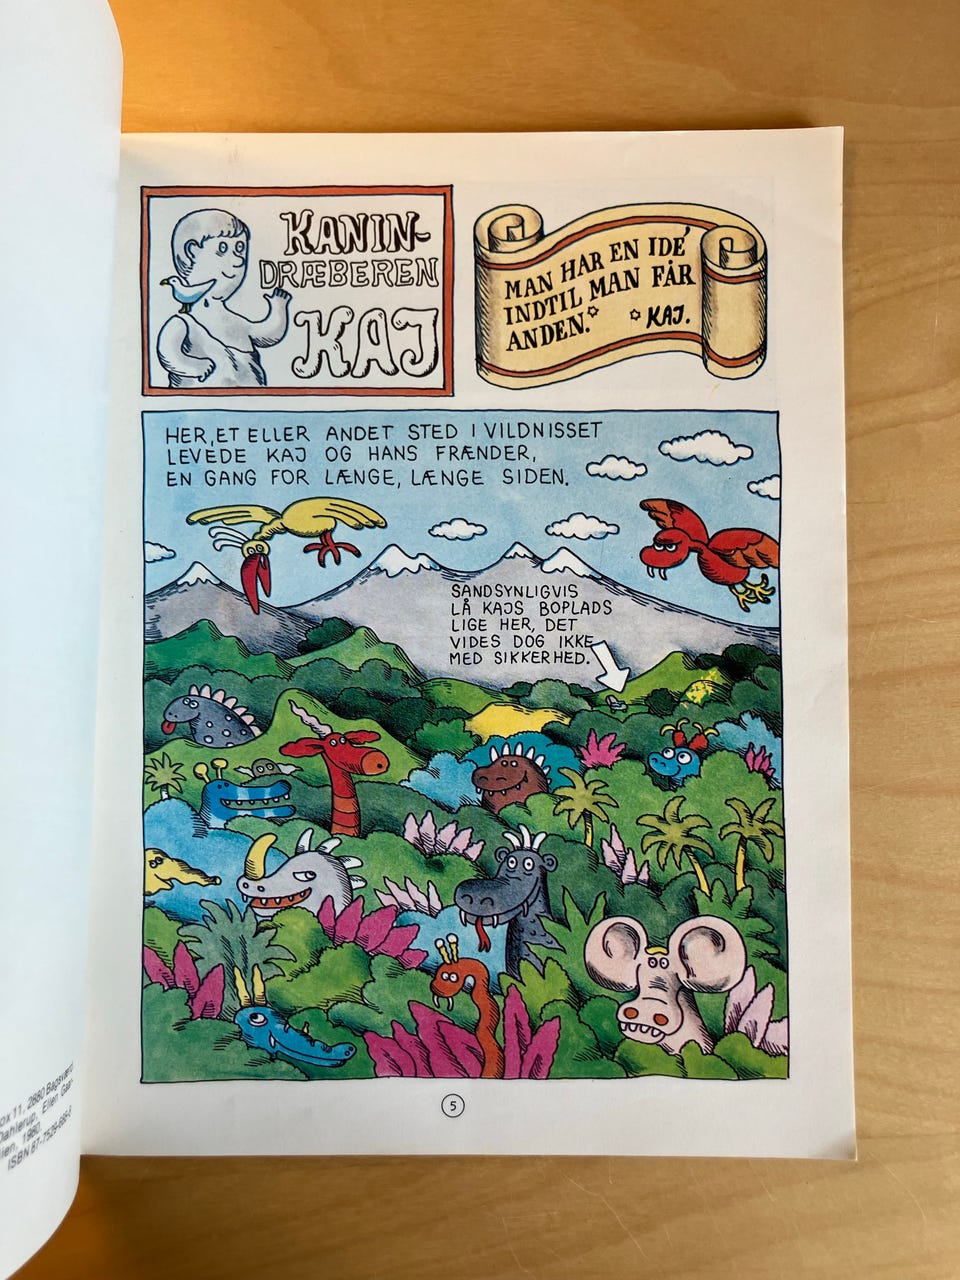 KANIN-
DRÆBEREN
KAJ
MAN HAR EN IDÉ
INDTIL MAN FÅR
ANDEN.* *KAJ.
HER, ET ELLER ANDET STED I VILDNISSET
LEVEDE KAJ OG HANS FRÆNDER,
EN GANG FOR LÆNGE, LÆNGE SIDEN.
SANDSYNLIGVIS
LÅ KAJS BOPLADS
LIGE HER, DET
VIDES DOG IKKE
MED SIKKERHED.
5
11, 2880 Bagsværd
Dahlerup, Ellen
1980
ISBN 87-7529-